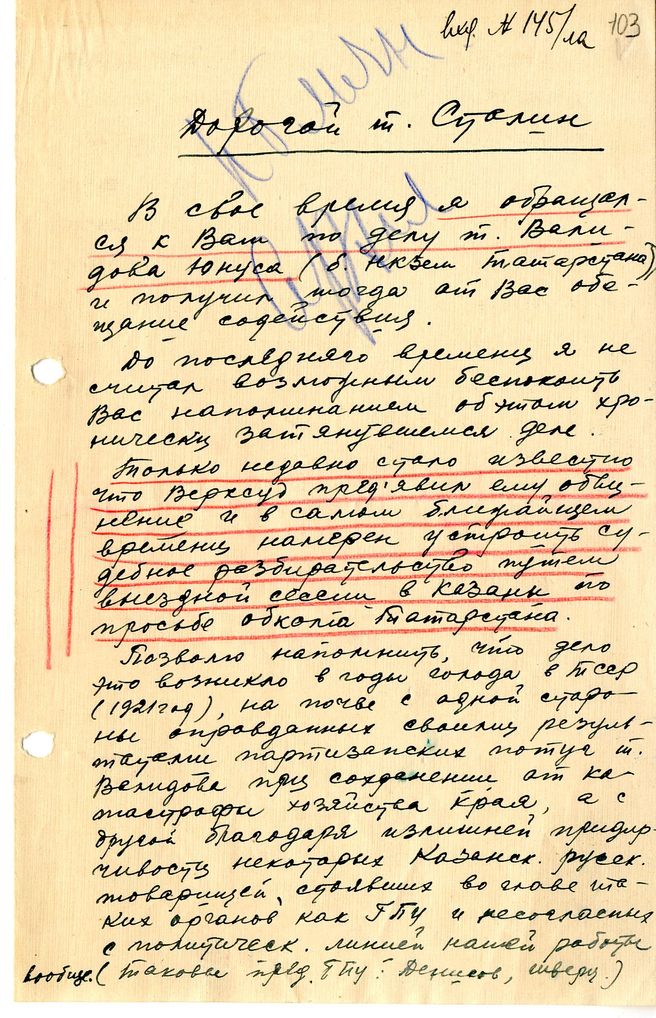 вхд. № 145/ла
103
Дорогой т. Сталин
В свое время я обращал-
ся к Вам по делу т. Вали-
дова Юнуса (б. НКЗем Татарстана),
и получил тогда от Вас обе-
щание содействия.
До последняго времени я не
считал возможным беспокоить
Вас напоминанием об этом хро-
нически затянувшемся деле.
Только недавно стало известно
что Верхсуд пред'явил ему обви-
нение и в самом ближайщем
времени намерен устроить су-
дебное разбирательство путем
выездной сессии в Казань по
просьбе обкома Татарстана.
Позволю напомнить, что дело
это возникло в годы голода в ТССР
(1921 год), на почве с одной сторо-
ны оправданных своими резуль-
татами партизанских потуг т.
Валидова при сохранении от ка-
тастрофы хозяйства края, а с
другой благодаря излишней придир-
чивости некоторых Казанск. русск.
товарищей, стоявших во главе та-
ких органов как ГПУ и несогласных
с политическ. линией нашей работы
вообще. (Таковы пред. ГПУ: Денисов, Шверц.)